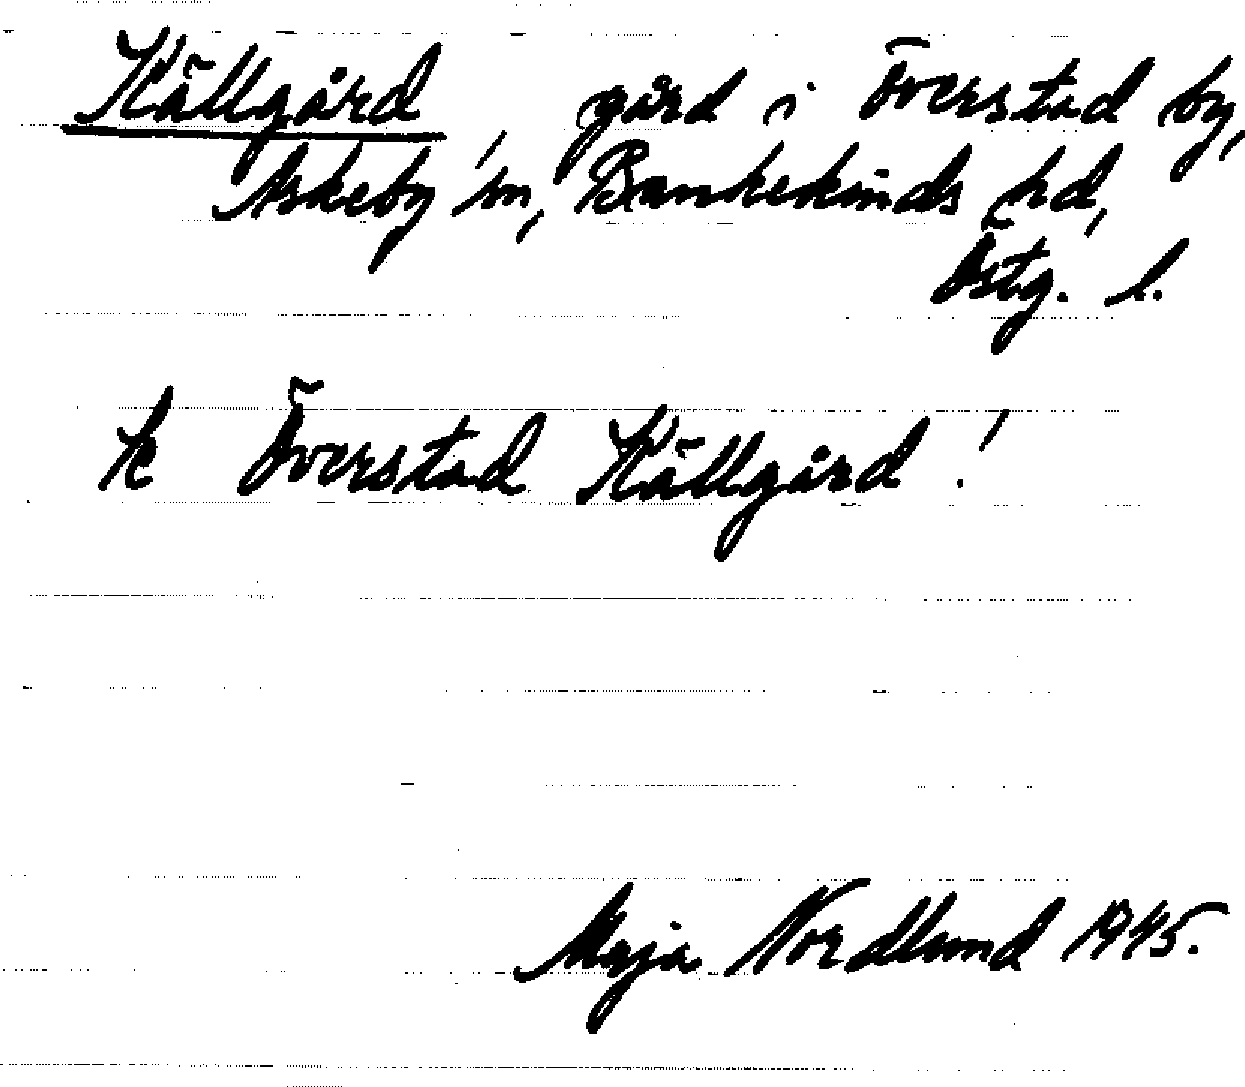 Källgård, gård i Överstad by,
Askeby sn, Bankekinds hd,
Östg. l.
K Överstad Källgård!
Maja Nordlund 1945.